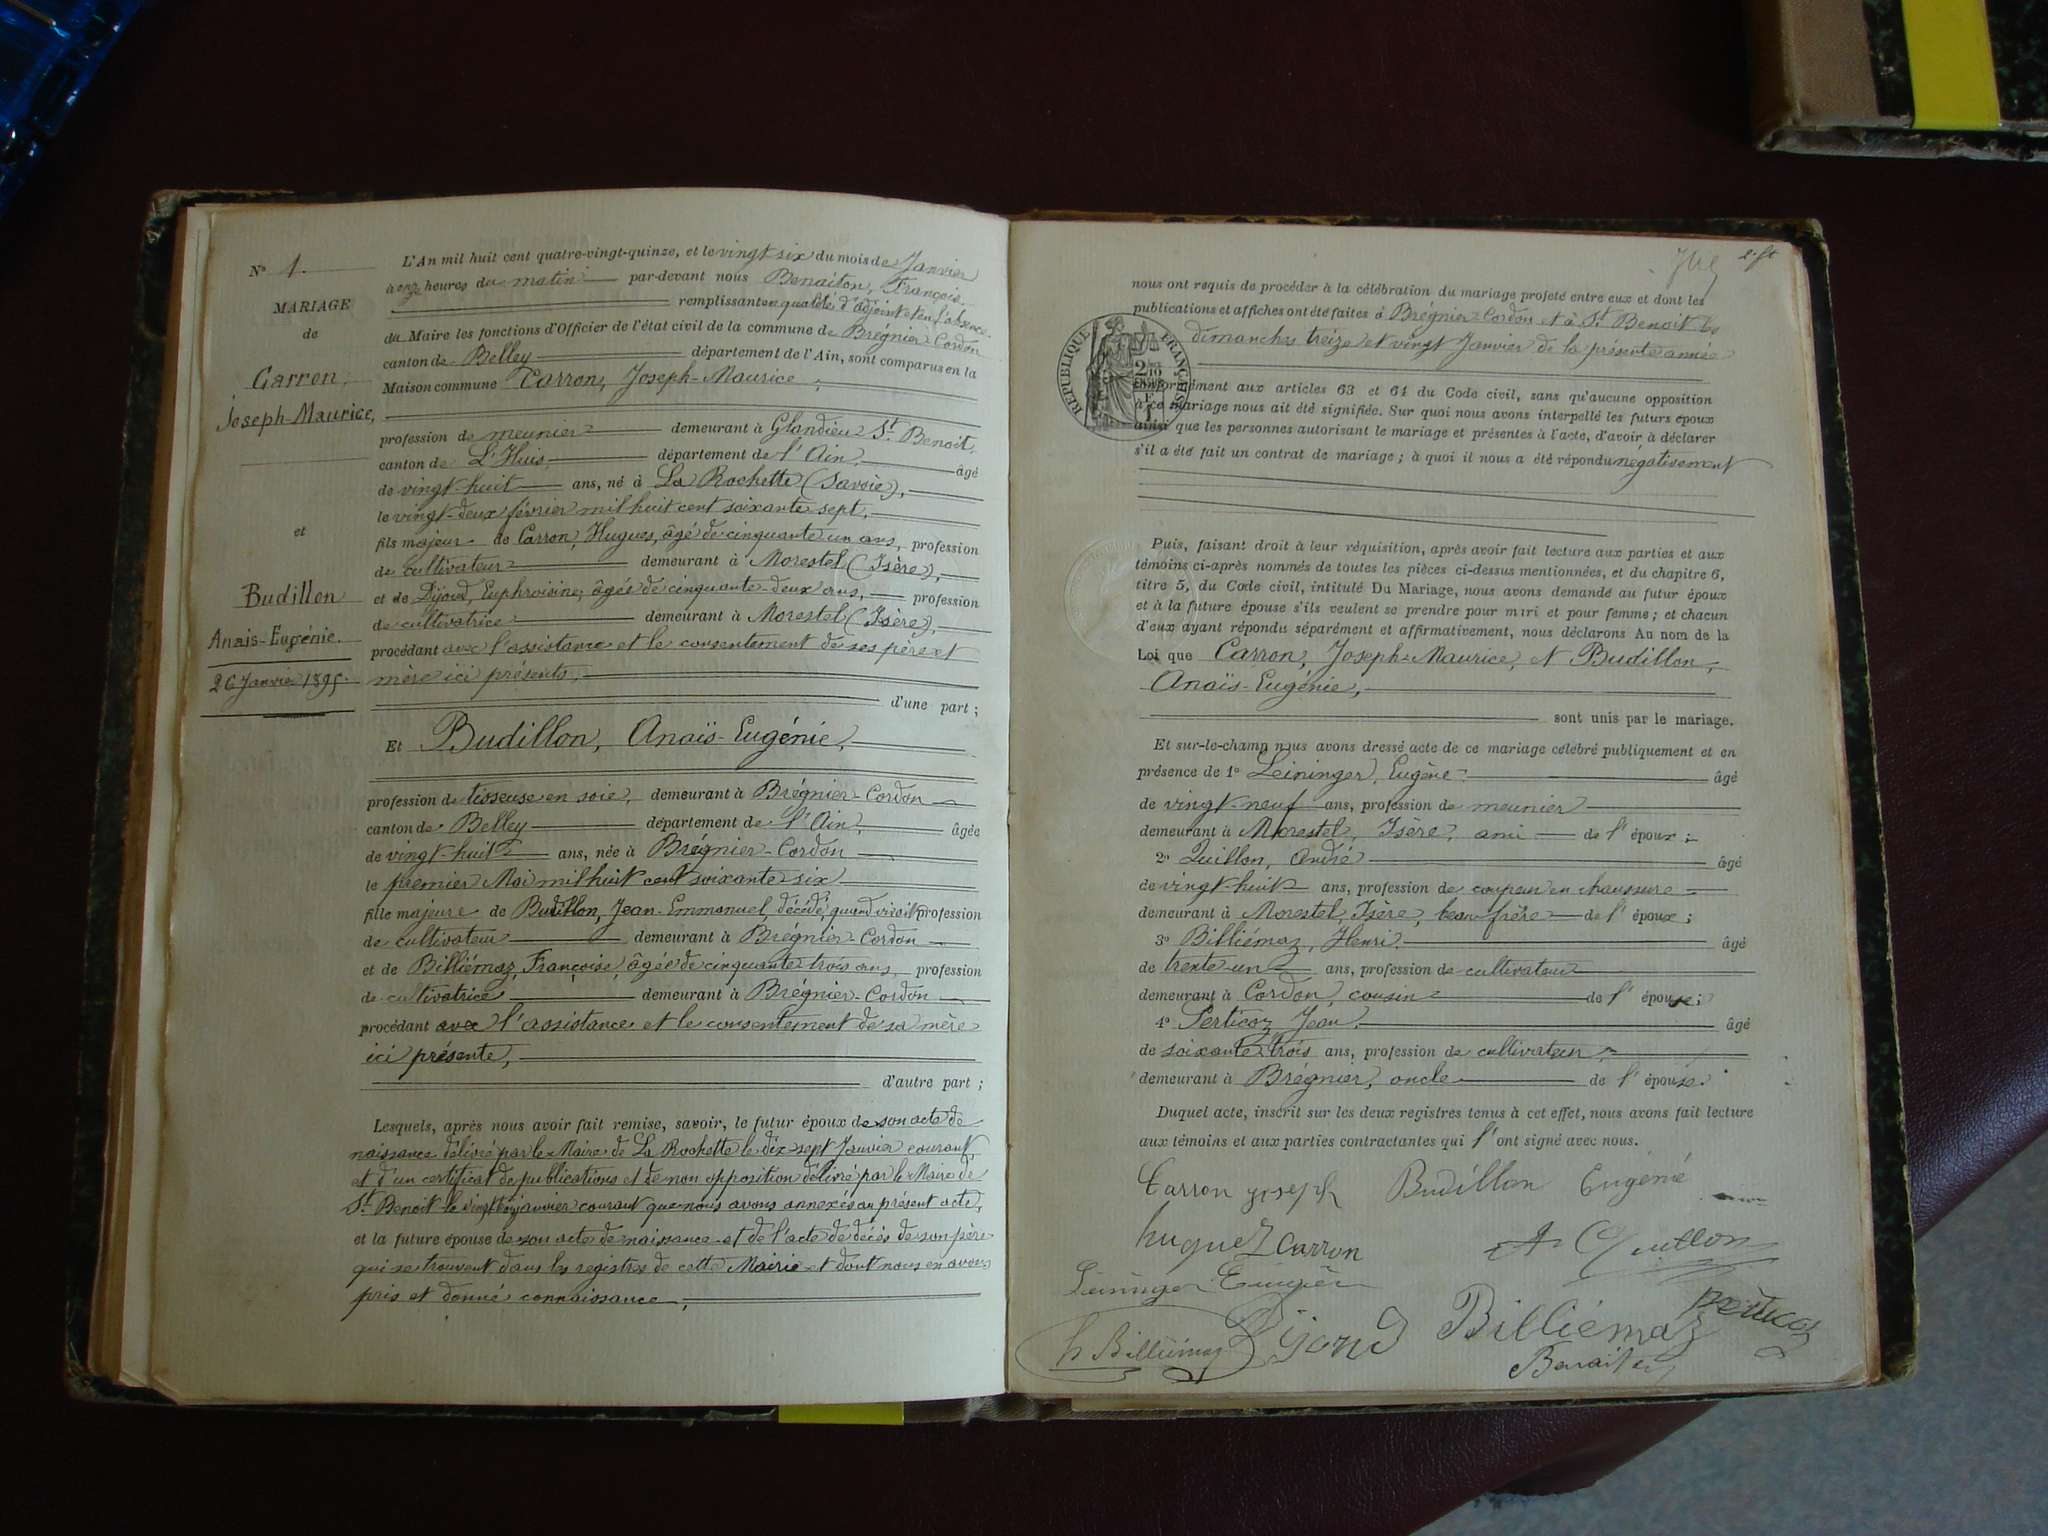 N° 1.
MARIAGE
de
Carron,
Joseph-Maurice,
et
Budillon
Anais-Eugénie.
26 Janvier 1895.
L'An mil huit cent quatre-vingt-quinze, et le vingt six du mois de Janvier
à onze heures du matin par-devant nous Benaiton, François
remplissant en qualité d'adjoint et en l'absence
du Maire les fonctions d'Officier de l'état civil de la commune de Brégnier-Cordon
canton de Belley département de l'Ain, sont comparus en la
Maison commune Carron, Joseph-Maurice,
profession de meunier demeurant à Glandieu St Benoit,
canton de L'Huis département de l'Ain, âgé
de vingt-huit ans, né à La Rochette (Savoie),
le vingt-deux février mil huit cent soixante sept,
fils majeur de Carron, Hugues, âgé de cinquante un ans, profession
de cultivateur demeurant à Morestel (Isère),
et de Dijoud, Euphroisine, âgée de cinquante-deux ans, profession
de cultivatrice demeurant à Morestel (Isère),
procédant avec l'assistance et le consentement de ses père et
mère ici présents,
d'une part ;
Et Budillon, Anaïs-Eugénie,
profession de tisseuse en soie, demeurant à Brégnier-Cordon
canton de Belley département de l'Ain, âgée
de vingt-huit ans, née à Brégnier-Cordon
le premier Mai mil huit cent soixante six
fille majeure de Budillon, Jean-Emmanuel, décédé, quand vivait profession
de cultivateur demeurant à Brégnier-Cordon
et de Billiémaz, Françoise, âgée de cinquante-trois ans, profession
de cultivatrice demeurant à Brégnier-Cordon
procédant avec l'assistance et le consentement de sa mère
ici présente,
d'autre part ;
Lesquels, après nous avoir fait remise, savoir, le futur époux de son acte de
naissance délivré par le Maire de La Rochette le dix-sept Janvier courant,
et d'un certificat de publications et de non opposition délivré par le Maire de
St Benoit le vingt janvier courant que nous avons annexés au présent acte,
et la future épouse de son acte de naissance et de l'acte de décès de son père
qui se trouvent dans les registres de cette Mairie et dont nous en avons
pris et donné connaissance,
2e ft
nous ont requis de procéder à la célébration du mariage projeté entre eux et dont les
publications et affiches ont été faites à Brégnier-Cordon et à St Benoit les
dimanches treize et vingt Janvier de la présente année
RÉPUBLIQUE FRANÇAISE
conformément aux articles 63 et 64 du Code civil, sans qu'aucune opposition
à ce mariage nous ait été signifiée. Sur quoi nous avons interpellé les futurs époux
ainsi que les personnes autorisant le mariage et présentes à l'acte, d'avoir à déclarer
s'il a été fait un contrat de mariage ; à quoi il nous a été répondu négativement
Puis, faisant droit à leur réquisition, après avoir fait lecture aux parties et aux
témoins ci-après nommés de toutes les pièces ci-dessus mentionnées, et du chapitre 6,
titre 5, du Code civil, intitulé Du Mariage, nous avons demandé au futur époux
et à la future épouse s'ils veulent se prendre pour mari et pour femme ; et chacun
d'eux ayant répondu séparément et affirmativement, nous déclarons Au nom de la
Loi que Carron, Joseph-Maurice, et Budillon,
Anaïs-Eugénie,
sont unis par le mariage.
Et sur-le-champ nous avons dressé acte de ce mariage célébré publiquement et en
présence de 1° Leininger, Eugène âgé
de vingt-neuf ans, profession de meunier
demeurant à Morestel, Isère, ami de l'époux ;
2° Quillon, André âgé
de vingt-huit ans, profession de coupeur en chaussure
demeurant à Morestel, Isère, beau-frère de l'époux ;
3° Billiémaz, Henri âgé
de trente-un ans, profession de cultivateur
demeurant à Cordon, cousin de l'épouse ;
4° Perticoz Jean âgé
de soixante-trois ans, profession de cultivateur
demeurant à Brégnier, oncle de l'épouse.
Duquel acte, inscrit sur les deux registres tenus à cet effet, nous avons fait lecture
aux témoins et aux parties contractantes qui l'ont signé avec nous.
Carron joseph Budillon Eugénie
huguez carron A Quillon
Leininger Eugèn
h Billiémaz Dijoud Billiémaz Perticoz
Benaiton